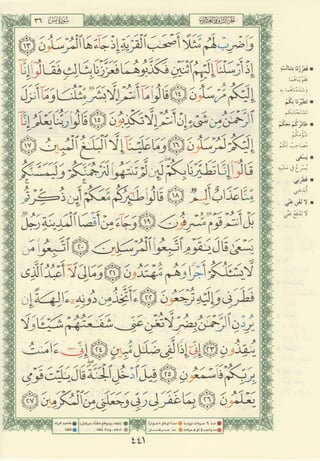 الجزء الثاني والعشرون
سورة يس ٣٦
وَٱضْرِبْ لَهُم مَّثَلًا أَصْحَٰبَ ٱلْقَرْيَةِ إِذْ جَآءَهَا ٱلْمُرْسَلُونَ ١٣
إِذْ أَرْسَلْنَآ إِلَيْهِمُ ٱثْنَيْنِ فَكَذَّبُوهُمَا فَعَزَّزْنَا بِثَالِثٍ فَقَالُوٓا۟ إِنَّآ
إِلَيْكُم مُّرْسَلُونَ ١٤ قَالُوا۟ مَآ أَنتُمْ إِلَّا بَشَرٌ مِّثْلُنَا وَمَآ أَنزَلَ
ٱلرَّحْمَٰنُ مِن شَىْءٍ إِنْ أَنتُمْ إِلَّا تَكْذِبُونَ ١٥ قَالُوا۟ رَبُّنَا يَعْلَمُ إِنَّآ
إِلَيْكُمْ لَمُرْسَلُونَ ١٦ وَمَا عَلَيْنَآ إِلَّا ٱلْبَلَٰغُ ٱلْمُبِينُ ١٧
قَالُوٓا۟ إِنَّا تَطَيَّرْنَا بِكُمْ لَئِن لَّمْ تَنتَهُوا۟ لَنَرْجُمَنَّكُمْ وَلَيَمَسَّنَّكُم
مِّنَّا عَذَابٌ أَلِيمٌ ١٨ قَالُوا۟ طَٰٓئِرُكُم مَّعَكُمْ أَئِن ذُكِّرْتُم
بَلْ أَنتُمْ قَوْمٌ مُّسْرِفُونَ ١٩ وَجَآءَ مِنْ أَقْصَا ٱلْمَدِينَةِ رَجُلٌ
يَسْعَىٰ قَالَ يَٰقَوْمِ ٱتَّبِعُوا۟ ٱلْمُرْسَلِينَ ٢٠ ٱتَّبِعُوا۟ مَن
لَّا يَسْـَٔلُكُمْ أَجْرًا وَهُم مُّهْتَدُونَ ٢١ وَمَا لِىَ لَآ أَعْبُدُ ٱلَّذِى
فَطَرَنِى وَإِلَيْهِ تُرْجَعُونَ ٢٢ ءَأَتَّخِذُ مِن دُونِهِۦٓ ءَالِهَةً إِن
يُرِدْنِ ٱلرَّحْمَٰنُ بِضُرٍّ لَّا تُغْنِ عَنِّى شَفَٰعَتُهُمْ شَيْـًٔا وَلَا
يُنقِذُونِ ٢٣ إِنِّىٓ إِذًا لَّفِى ضَلَٰلٍ مُّبِينٍ ٢٤ إِنِّىٓ ءَامَنتُ
بِرَبِّكُمْ فَٱسْمَعُونِ ٢٥ قِيلَ ٱدْخُلِ ٱلْجَنَّةَ قَالَ يَٰلَيْتَ قَوْمِى
يَعْلَمُونَ ٢٦ بِمَا غَفَرَ لِى رَبِّى وَجَعَلَنِى مِنَ ٱلْمُكْرَمِينَ ٢٧
٤٤١